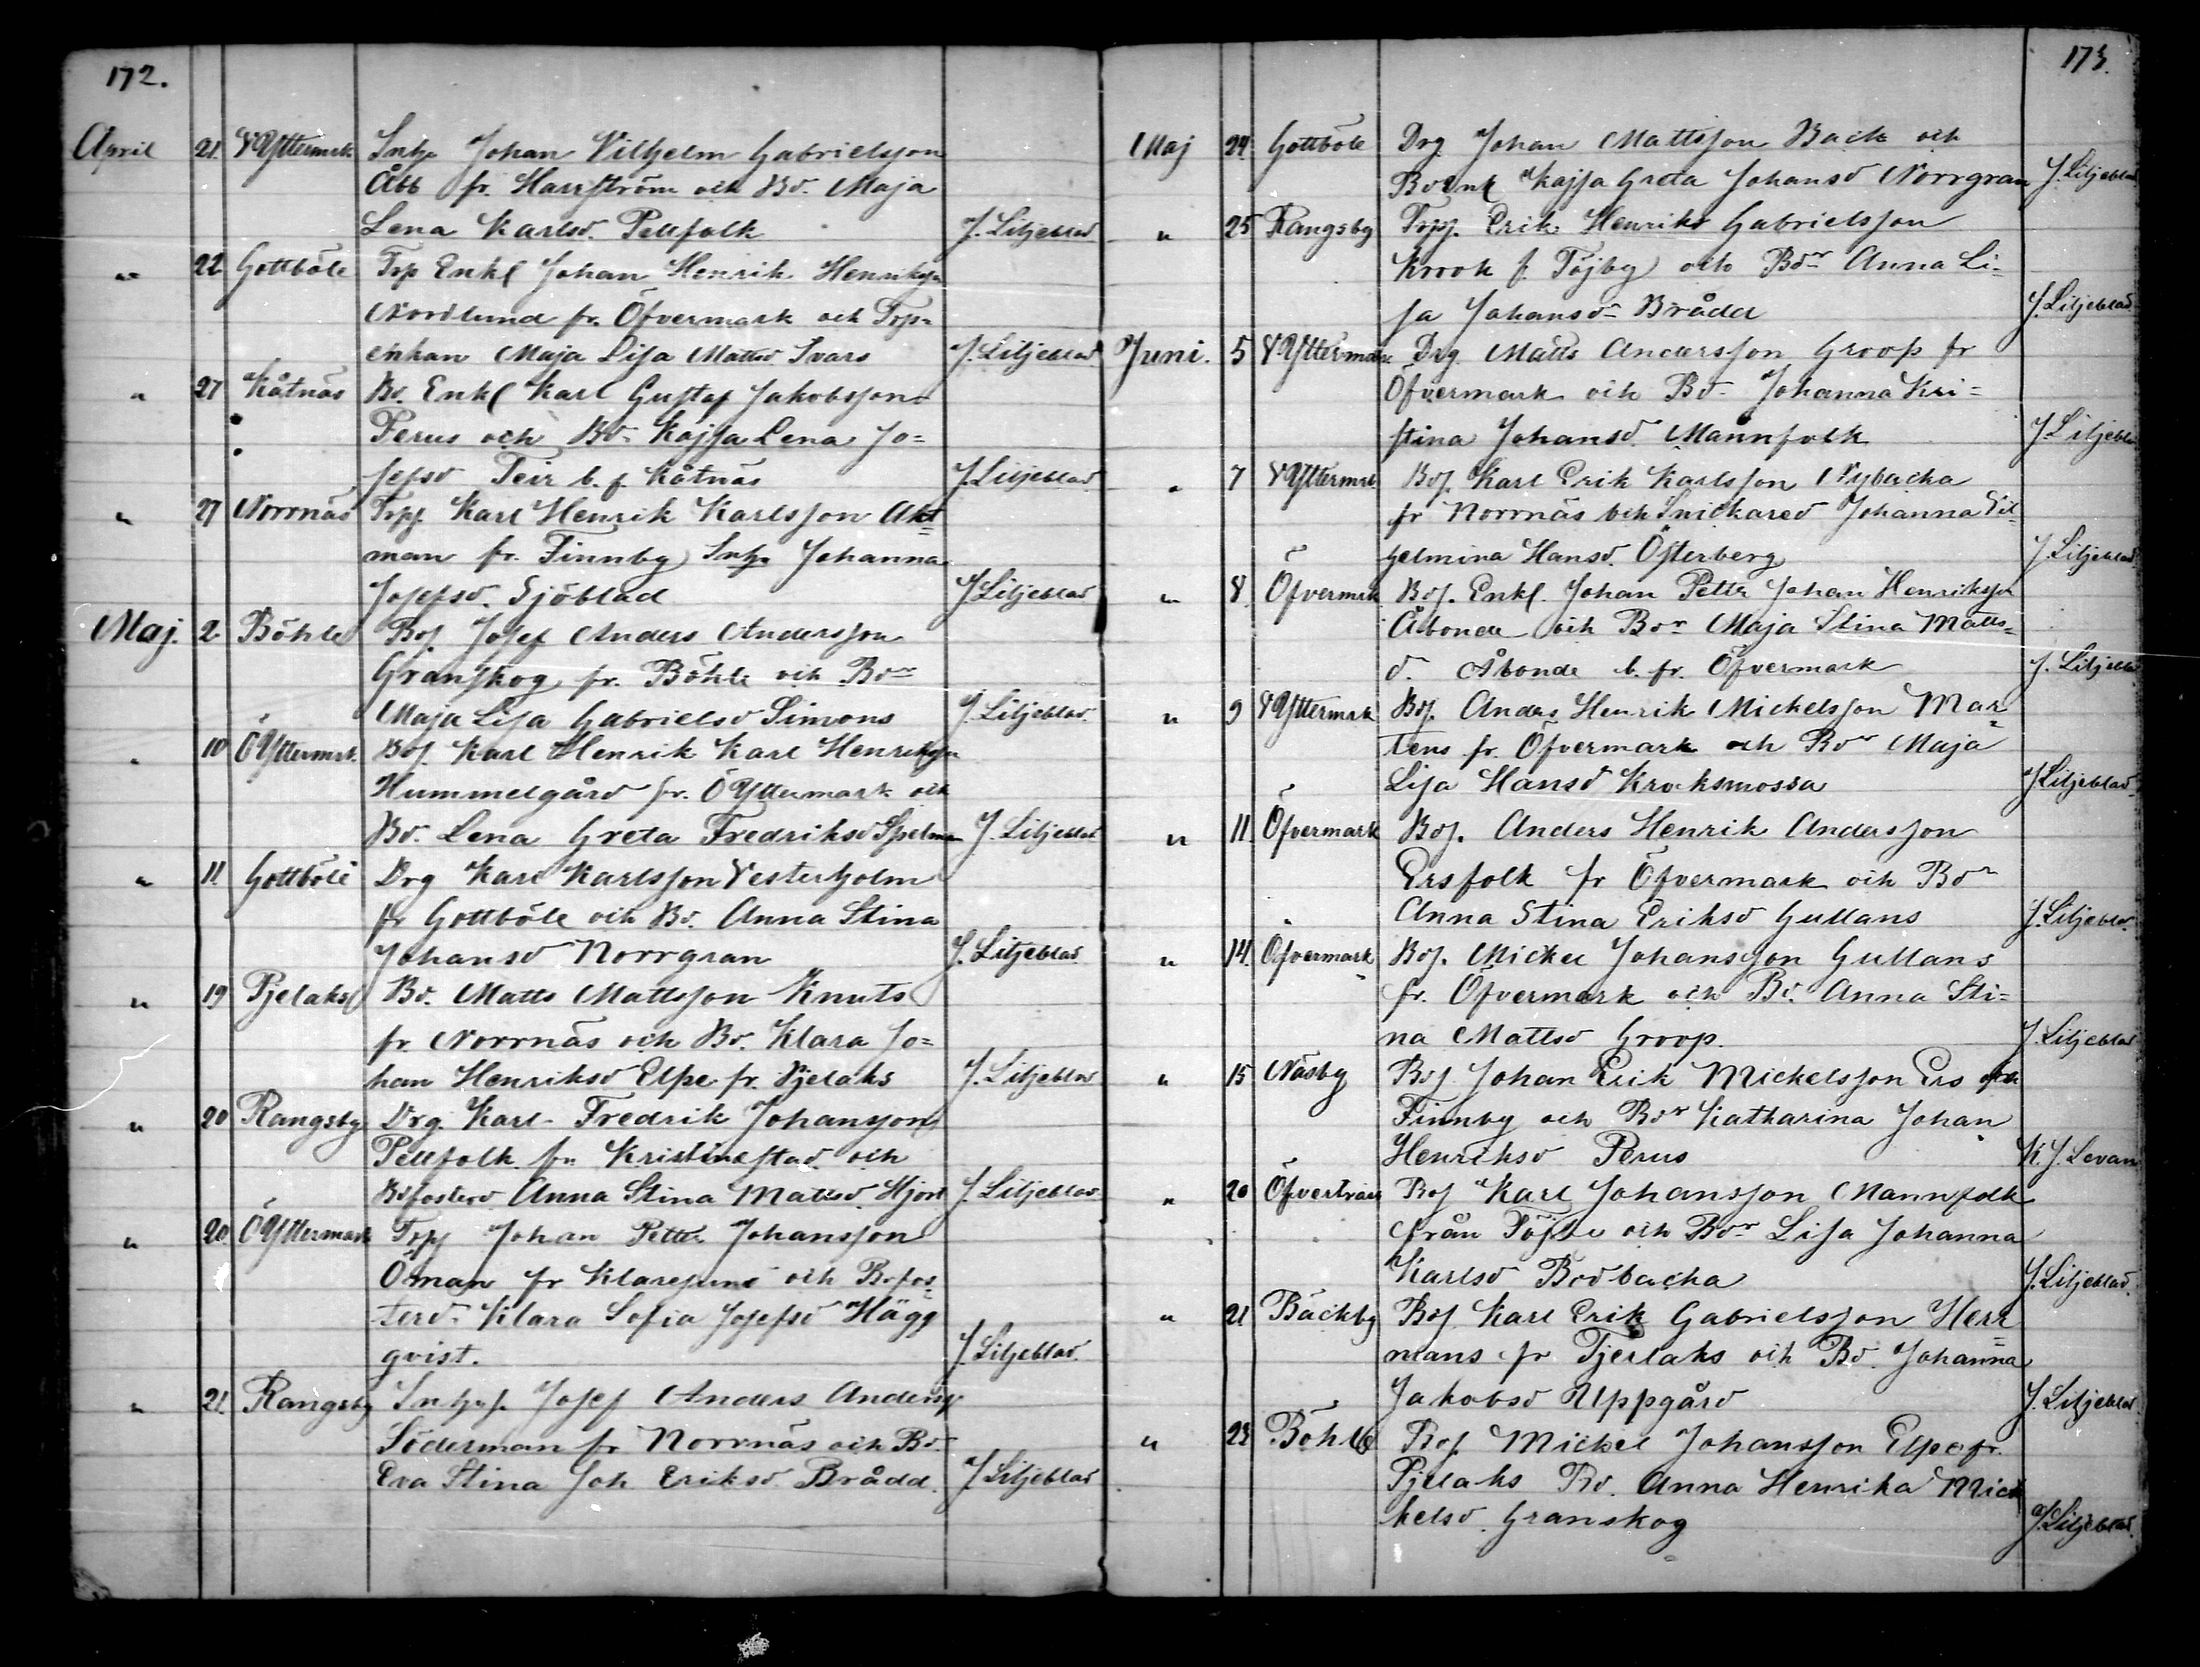 172.
April 21. V Yttermrk Inhp Johan Vilhelm Gabrielsson
Åbb fr. Harrström och Bd. Maja
Lena Karlsd. Pellfolk J. Liljeblad
" 22 Gottböle Trp Enkl Johan Henrik Henriksson
Nordlund fr. Öfvermark och Trp-
enkan Maja Lisa Mattsd. Svars J. Liljeblad
" 27 Kåtnäs Bd. Enkl Karl Gustaf Jakobsson
Perus och Bd. Kajsa Lena Jo=
sefsd Teir b. f. Kåtnäs J. Liljeblad
" 27 Norrnäs Trpj. Karl Henrik Karlsson Akt=
man fr. Finnby Inhp Johanna
Josefsd. Sjöblad J. Liljeblad
Maj. 2 Böhle Bdj. Josef Anders Andersson
Granskog fr. Böhle och Bdr
Maja Lisa Gabrielsd Simons J. Liljeblad
" 10 Ö Yttermrk. Bdj. Karl Henrik Karl Henriksson
Hummelgård fr. Ö Yttermark och
Bd. Lena Greta Fredriksd Spelman J. Liljeblad
" 11. Gottböle Drg Karl Karlsson Vesterholm
fr Gottböle och Bd. Anna Stina
Johansd Norrgran J. Liljeblad
" 19 Pjelaks Bd. Matts Mattsson Knuts
fr. Norrnäs och Bd. Klara Jo=
han Henriksd Elpe fr. Pjelaks J. Liljeblad
" 20 Rangsby Drg. Karl Fredrik Johansson
Pellfolk fr. Kristinestad och
Bdfosterd Anna Stina Mattsd. Hjort J. Liljeblad
" 20. Ö Yttermark Trpj Johan Petter Johansson
Öman fr Klaresund och Bdfos=
terd. Klara Sofia Josefsd Hägg
qvist. J. Liljeblad.
" 21. Rangsby Inhps. Josef Anders Anderss
Söderman fr Norrnäs och Bd.
Eva Stina Joh Eriksd. Brådd. J. Liljeblad
173.
Maj 24 Gottböle Drg Johan Mattsson Back och
Bdenk Kajsa Greta Johansd Norrgran J. Liljeblad
" 25 Rangsby Trpj. Erik Henriks Gabrielsson
Krook f. Töjby och Bdr Anna Li-
sa Johansd Brådd J. Liljeblad
Juni. 5 V Yttermark Drg. Matts Andersson Groop fr
Öfvermark och Bd. Johanna Kri=
stina Johansd. Mannfolk J. Liljeblad
" 7 V Yttermrk. Bdj. Karl Erik Karlsson Nybacka
fr Norrnäs och Snickared Johanna Vil-
helmina Hansd. Österberg J. Liljeblad
" 8 Öfvermrk Bdj. Enkl. Johan Petter Johan Henriksson
Åbonde och Bdr Maja Stina Matts=
d. Åbonde b. fr. Öfvermark J. Liljeblad
" 9 V Yttermrk Bdj. Anders Henrik Mickelsson Mar=
tens fr. Öfvermark och Bdr Maja
Lisa Hansd Krooksmossa J. Liljeblad
" 11. Öfvermark Bdj. Anders Henrik Andersson
Ersfolk fr Öfvermark och Bdr
Anna Stina Eriksd Gullans J. Liljeblad.
" 14. Öfvermark Bdj. Mickel Johansson Gullans
fr. Öfvermark och Bd. Anna Sti=
na Mattsd Groop. J. Liljeblad
" 15 Näsby Bdj Johan Erik Mickelsson Ers
Finnby och Bdr Katharina Johan
Henriksd Perus K. J. Levan
" 20 Öfverträsk Bdj Karl Johansson Mannfolk
från Töjby och Bdr Lisa Johanna
Karlsd Bodbacka J. Liljeblad.
" 21 Bäckby Bdj Karl Erik Gabrielsson Herr=
mans fr Tjerlaks och Bd. Johanna
Jakobsd Uppgård J. Liljeblad
" 23 Böhle Bdj Mickel Johansson Elpe fr.
Pjelaks Bd. Anna Henrika Mick
kelsd. Granskog J. Liljeblad.